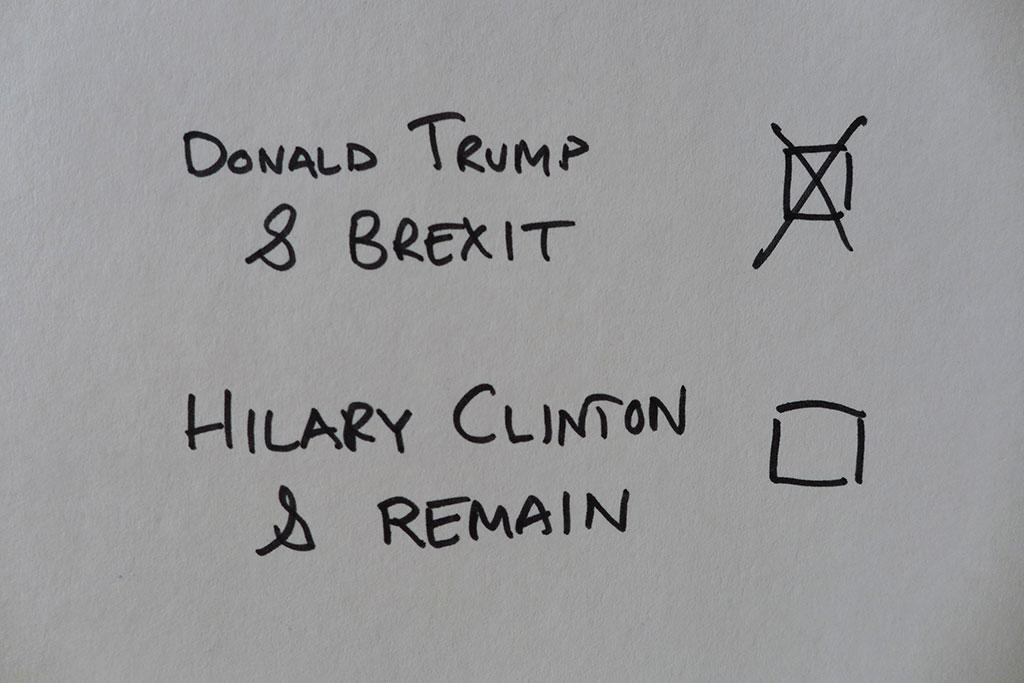 DONALD TRUMP
& BREXIT
HILARY CLINTON
& REMAIN